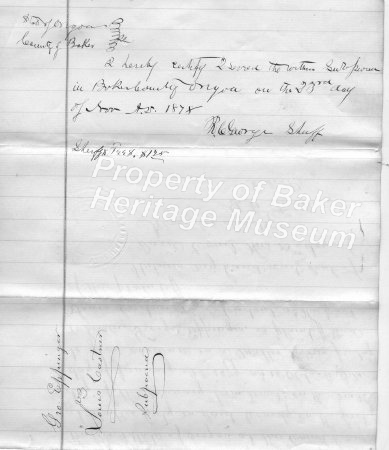 St of Oregon
County of Baker } ss
I hereby certify I served the within Subpoena
in Baker County Oregon on the 23rd day
of Nov A.D. 1878
George Sheriff
Sheriff's Fees,
Property of Baker
Heritage Museum
Geo Eppinger
vs
Louis Castner
Subpoena